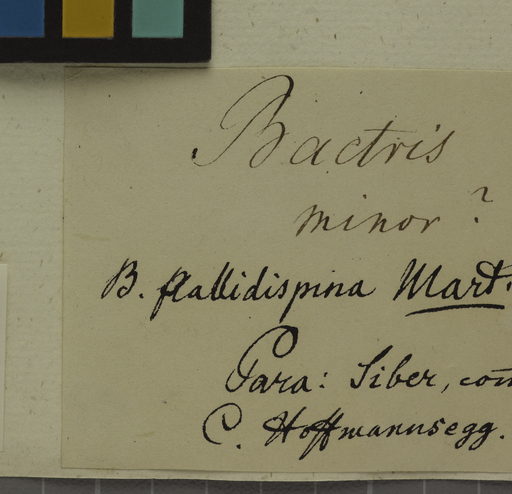 Bactris
minor ?
B. pallidispina Mart.
Para: Siber, com
C. Hoffmannsegg.